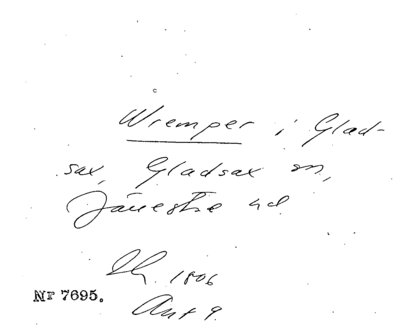 Wremper i Glad-
sax, Gladsax sn,
Järrestad hd
Lh. 1806
Ant 9.
NF 7695.